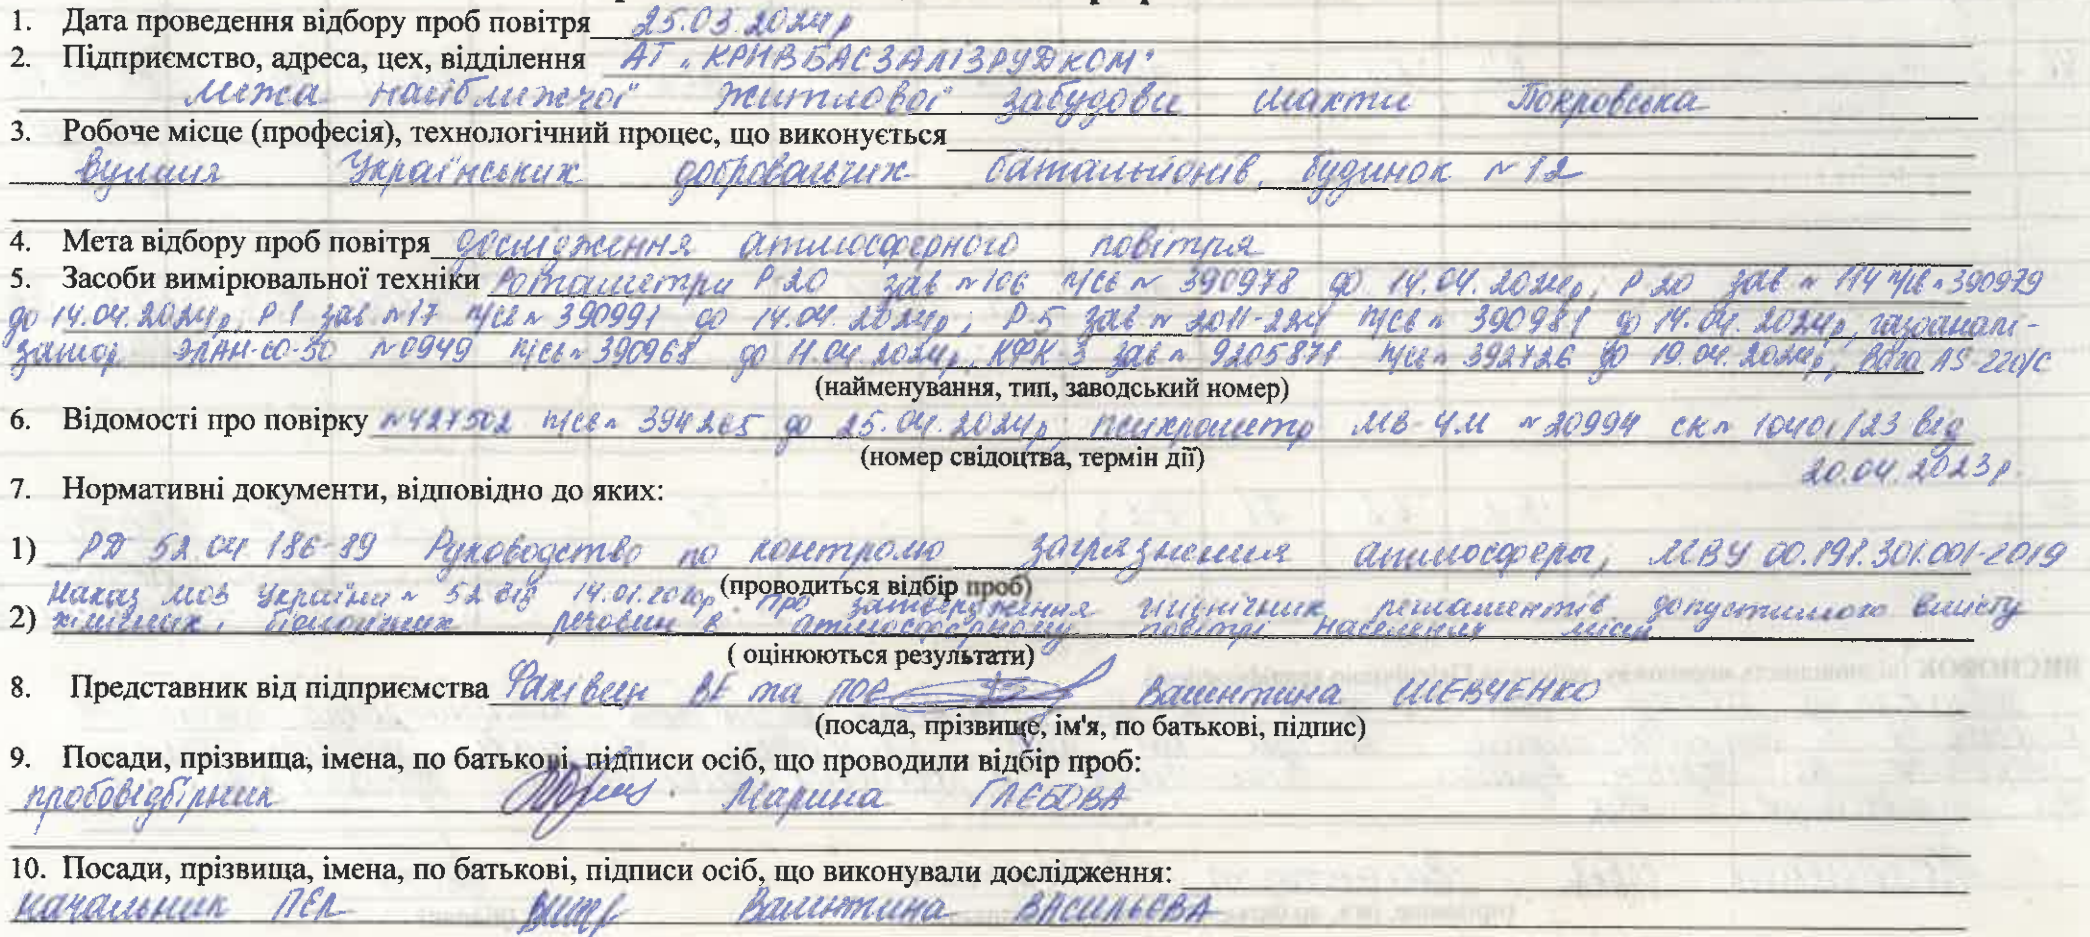 1. Дата проведення відбору проб повітря 25.03.2024р
2. Підприємство, адреса, цех, відділення АТ "КРИВБАСЗАЛІЗРУДКОМ"
межа найближчої житлової забудови шахти Покровська
3. Робоче місце (професія), технологічний процес, що виконується
вулиця Українських добровольчих батальйонів, будинок №12
4. Мета відбору проб повітря дослідження атмосферного повітря
5. Засоби вимірювальної техніки Ротаметри Р-20 зав №106 п/св № 390978 до 14.04.2024р, Р 20 зав № 114 п/св № 390979
до 14.04.2024р, Р-1 зав №17 п/св № 390991 до 14.04.2024р; Р-5 зав № 2011-224 п/св № 390981 до 14.04.2024р, газоаналі-
затор ЭЛАН-СО-50 №0949 п/св № 390968 до 11.04.2024р, КФК-3 зав № 9205871 п/св № 392726 до 19.04.2024р, вага AS-220/С
(найменування, тип, заводський номер)
6. Відомості про повірку №427502 п/св № 394265 до 25.04.2024р, психрометр МВ-4М №20994 ск № 10401/23 від
(номер свідоцтва, термін дії)
20.04.2023р.
7. Нормативні документи, відповідно до яких:
1) РД 52.04.186-89 Руководство по контролю загрязнения атмосферы, МВУ 00.191.301.001-2019
(проводиться відбір проб)
Наказ МОЗ України № 52 від 14.01.2020р про затвердження гігієнічних регламентів допустимого вмісту
2) хімічних і біологічних речовин в атмосферному повітрі населених місць
( оцінюються результати)
8. Представник від підприємства Фахівець ВЕ та ПОЕ Валентина ШЕВЧЕНКО
(посада, прізвище, ім'я, по батькові, підпис)
9. Посади, прізвища, імена, по батькові, підписи осіб, що проводили відбір проб:
пробовідбірник Марина ГЛЄБОВА
10. Посади, прізвища, імена, по батькові, підписи осіб, що виконували дослідження:
начальник ПЕЛ Валентина ВАСИЛЬЄВА